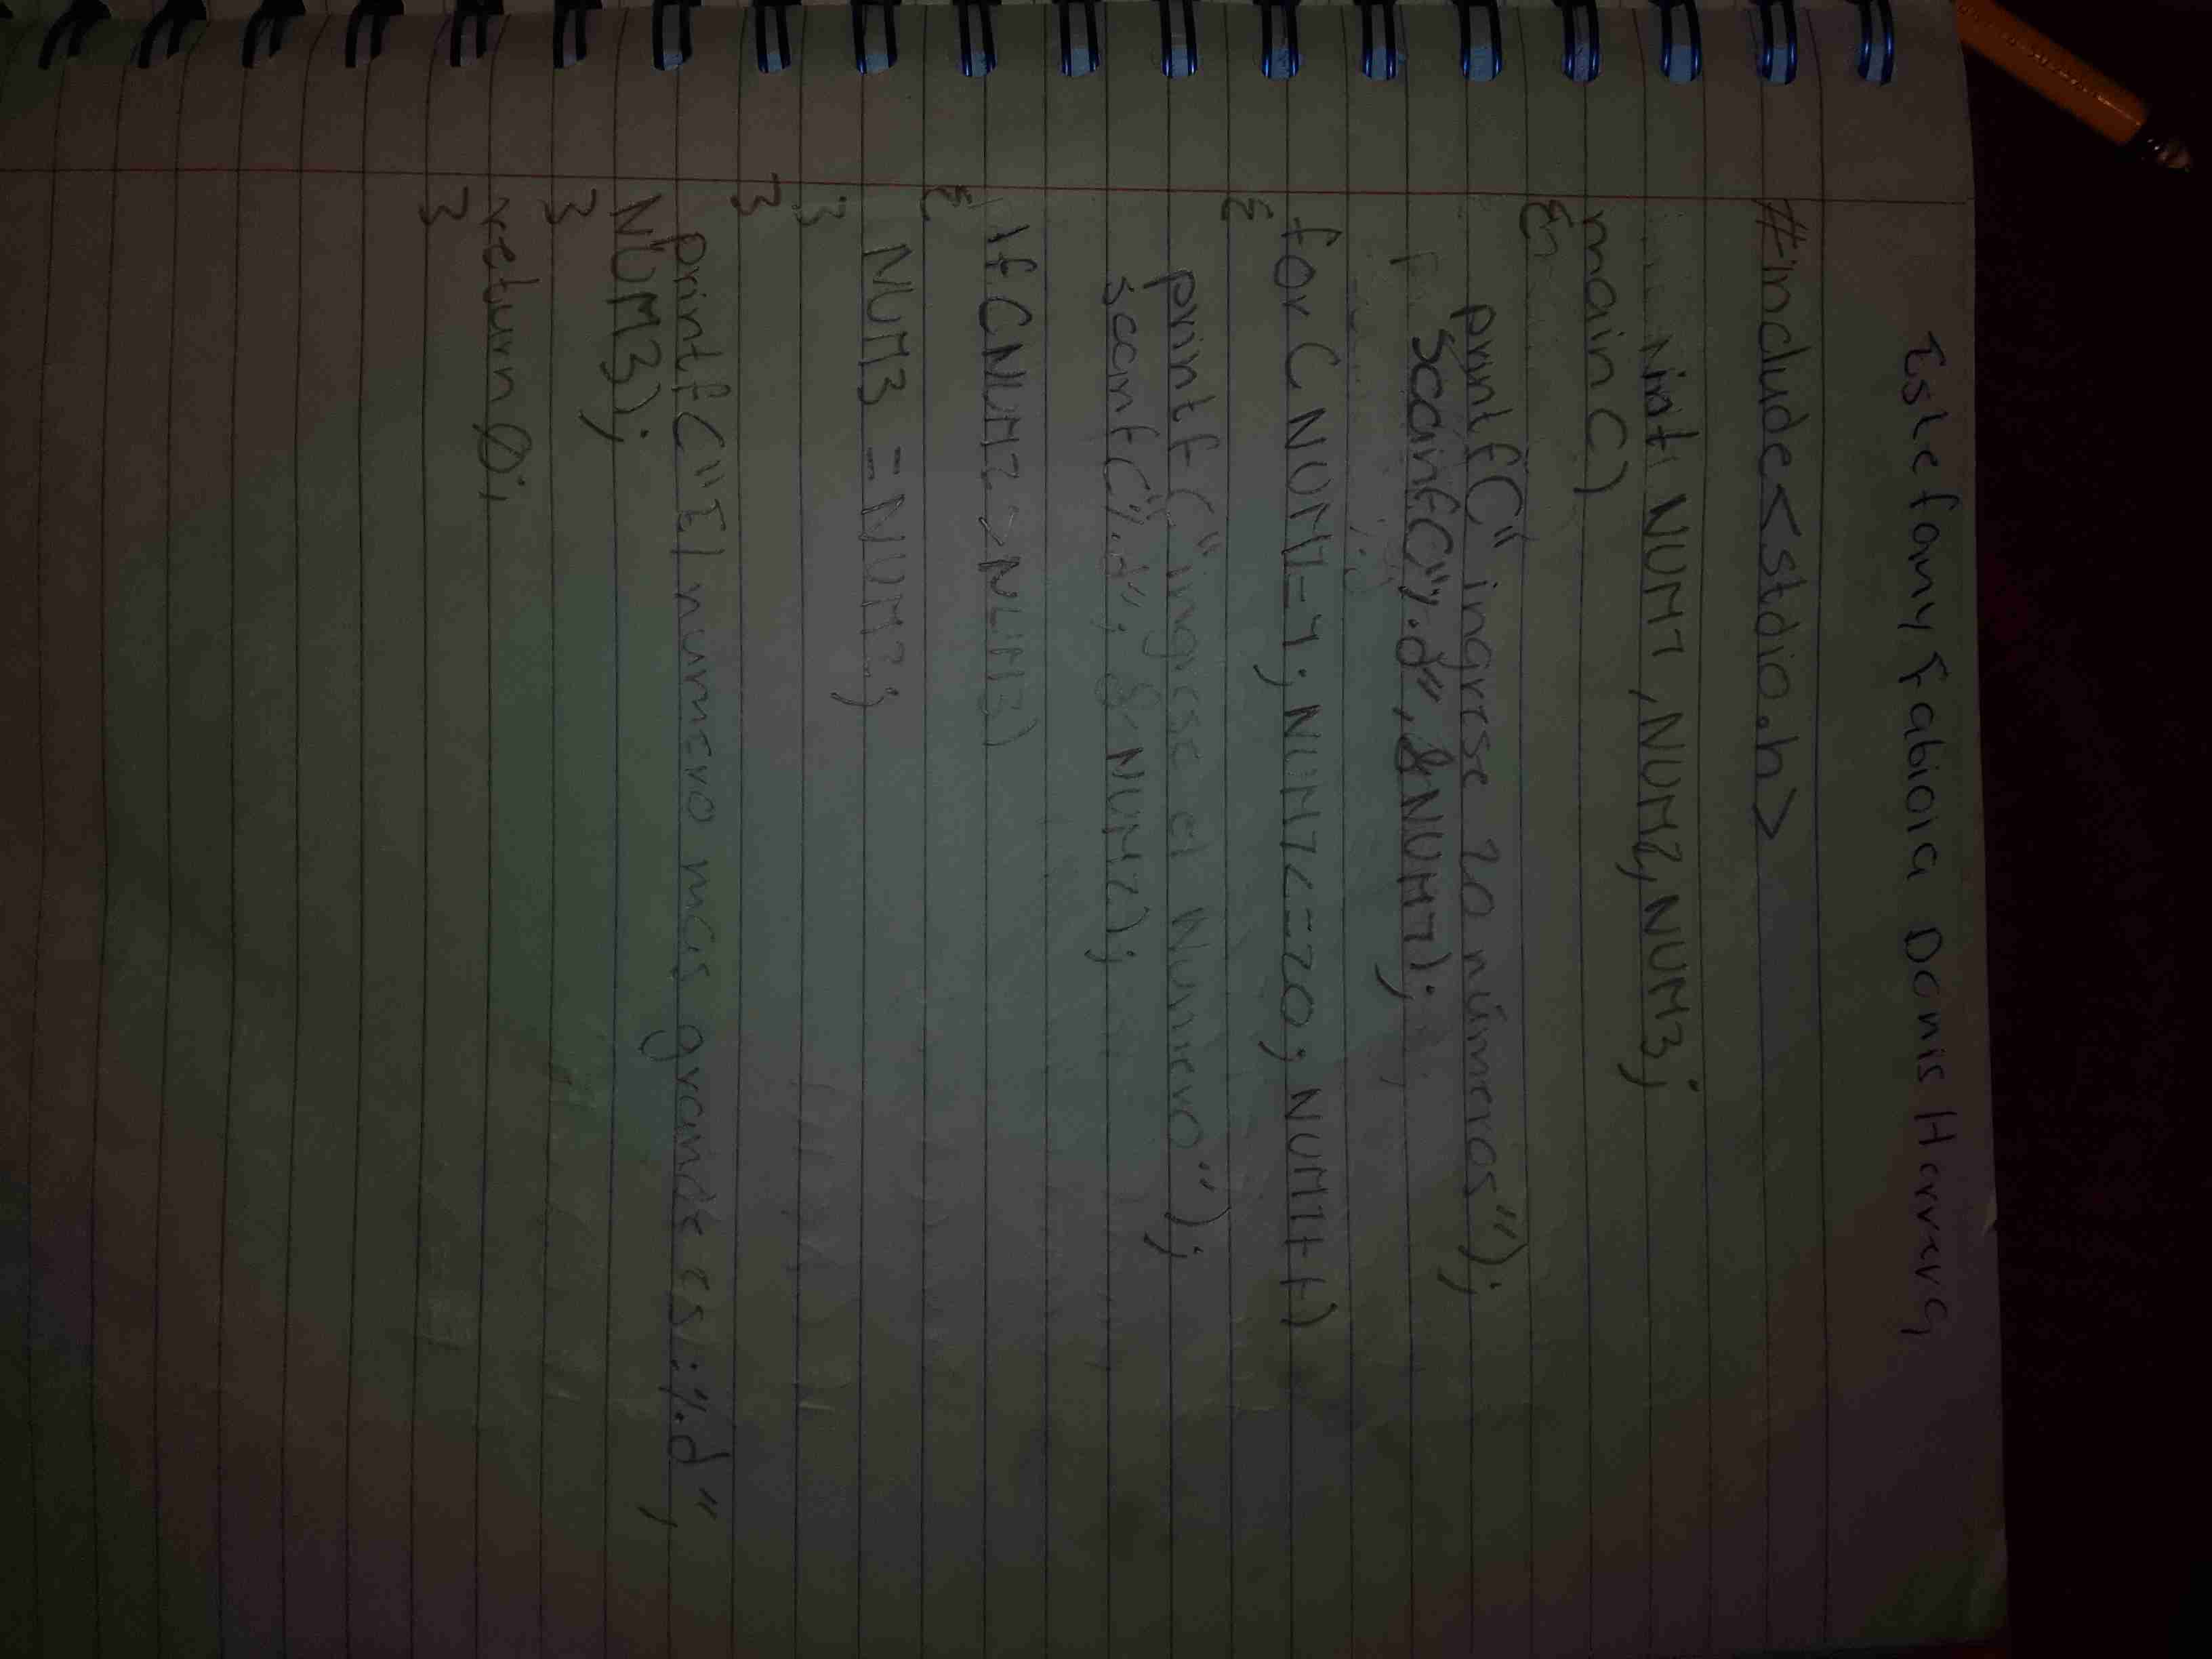 Estefany Fabiola Danis Herrera
#include<stdio.h>
int NUM1, NUM2, NUM3;
main()
{
printf("ingrese 20 números");
scanf("%d", &NUM1);
for (NUM1=1; NUM1<=20; NUM1++)
{
printf("ingrese el Numero");
scanf("%d", &NUM2);
if (NUM2>NUM3)
{
NUM3 =NUM2;
}
}
printf("El numero mas grande es:%d",
NUM3);
}
return 0;
}